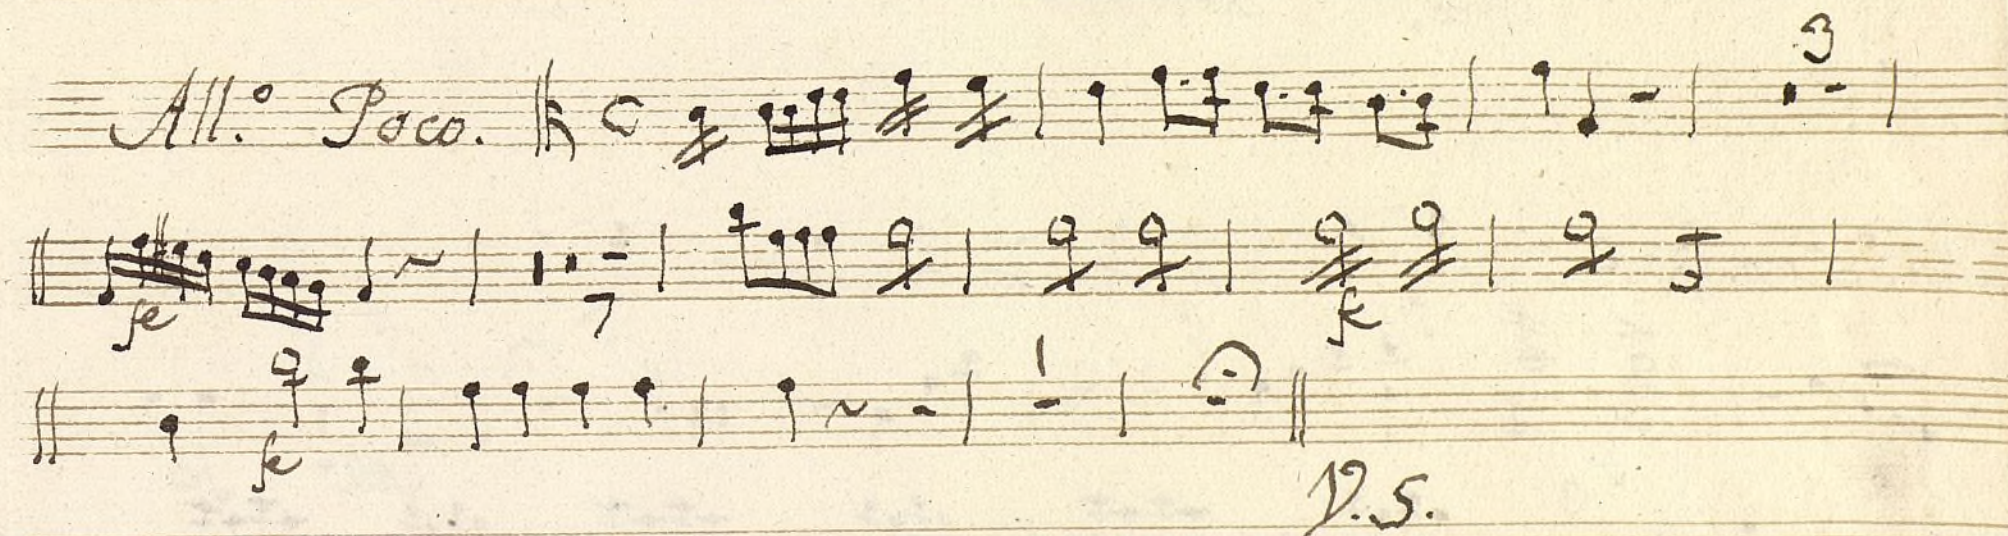 All.º Poco.
3
fe
7
fe
fe
1
V. S.